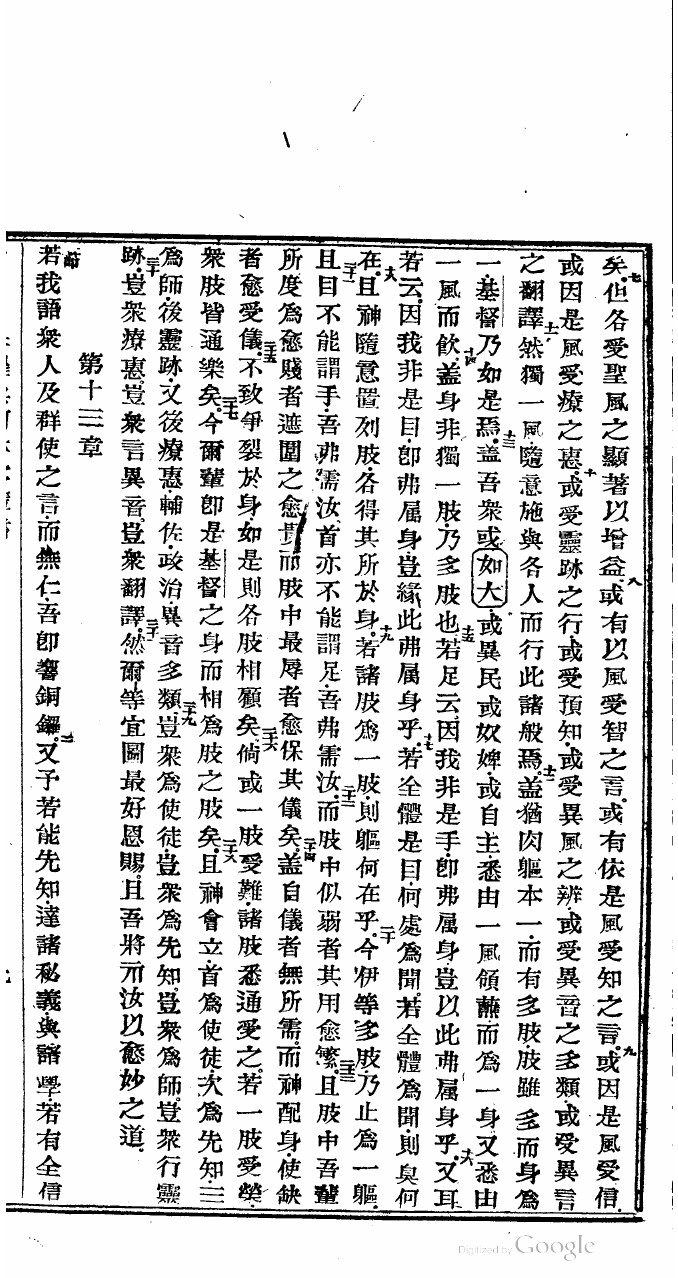 矣.但各受聖風之顯著以增益.或有以風受智之言.或有依是風受知之言.或因是風受信.
七 八 九
或因是風受療之惠.或受靈跡之行.或受預知.或受異風之辨.或受異音之多類.或受異言
十
之翻譯.然獨一風.隨意施與各人而行此諸般焉.蓋猶肉軀本一.而有多肢.肢雖多而身爲
十一 十二
一.基督乃如是焉.蓋吾衆或如大.或異民或奴婢.或自主.悉由一風領蘸而爲一身.又悉由
十三
一風而飲.蓋身非獨一肢.乃多肢也.若足云.因我非是手.卽弗屬身.豈以此弗屬身乎.又耳
十四 十五 十六
若云.因我非是目.卽弗屬身.豈緣此弗屬身乎.若全體是目.何處爲聞.若全體爲聞.則臭何
十七
在.且神隨意置列肢.各得其所於身.若諸肢爲一肢.則軀何在乎.今伊等多肢.乃止爲一軀.
十八 十九 二十
且目不能謂手.吾弗需汝.首亦不能謂足.吾弗需汝.而肢中似弱者其用愈繁.且肢中吾輩
二十一 二十二 二十三
所度爲愈賤者.遮圍之愈貴.而肢中最辱者愈保其儀矣.蓋自儀者無所需.而神配身.使缺
二十四
者愈受儀.不致爭裂於身.如是則各肢相顧矣.倘或一肢受難.諸肢悉通愛之.若一肢受榮.
二十五 二十六
衆肢皆通樂矣.今爾輩卽是基督之身而相爲肢之肢矣.且神會立首爲使徒.次爲先知.三
二十七 二十八
爲師.後靈跡.又後療惠.輔佐.政治.異音多類.豈衆爲使徒.豈衆爲先知.豈衆爲師.豈衆行靈
二十九
跡.豈衆療惠.豈衆言異音.豈衆翻譯.然爾等宜圖最好恩賜.且吾將示汝以愈妙之道.
三十 三十一
第十三章
若我語衆人及群使之言.而無仁.吾卽響銅鑼.又予若能先知.達諸秘義與諸學.若有全信
一節 二
Digitized by Google